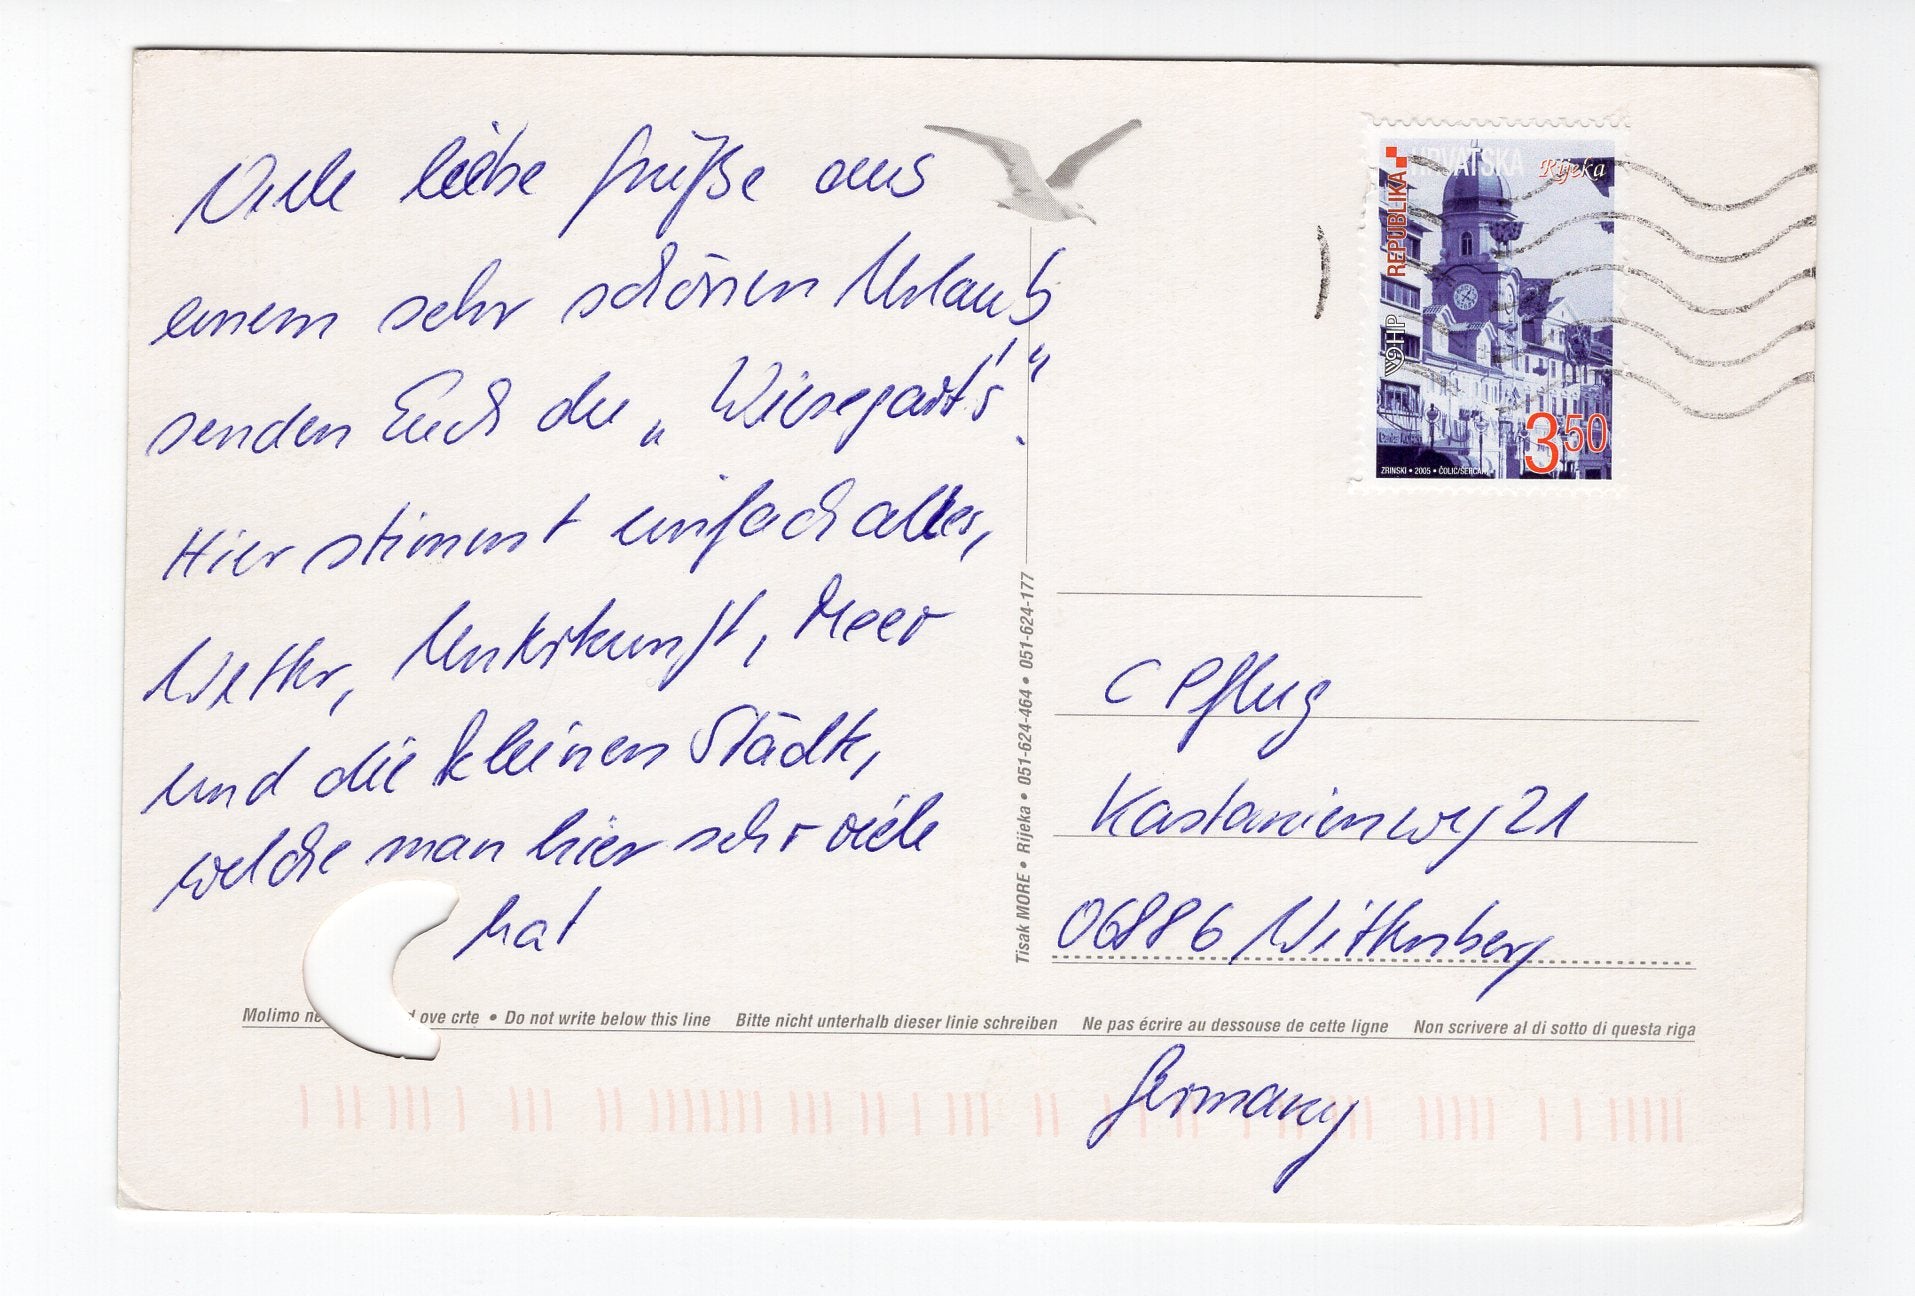 Viele liebe Grüße aus
einem sehr schönen Urlaub
senden Euch die „Wiesegart's".
Hier stimmt einfach alles,
Wetter, Unterkunft, Meer
und die kleinen Städte,
welche man hier sehr viele
hat
REPUBLIKA HRVATSKA
Rijeka
HP
350
ZRINSKI • 2005 • ČOLIĆ/ŠERCAR
Tisak MORE • Rijeka • 051-624-464 • 051-624-177
C Pflug
Kastanienweg 21
06886 Wittenberg
Molimo ne ove crte • Do not write below this line Bitte nicht unterhalb dieser linie schreiben Ne pas écrire au dessouse de cette ligne Non scrivere al di sotto di questa riga
Germany